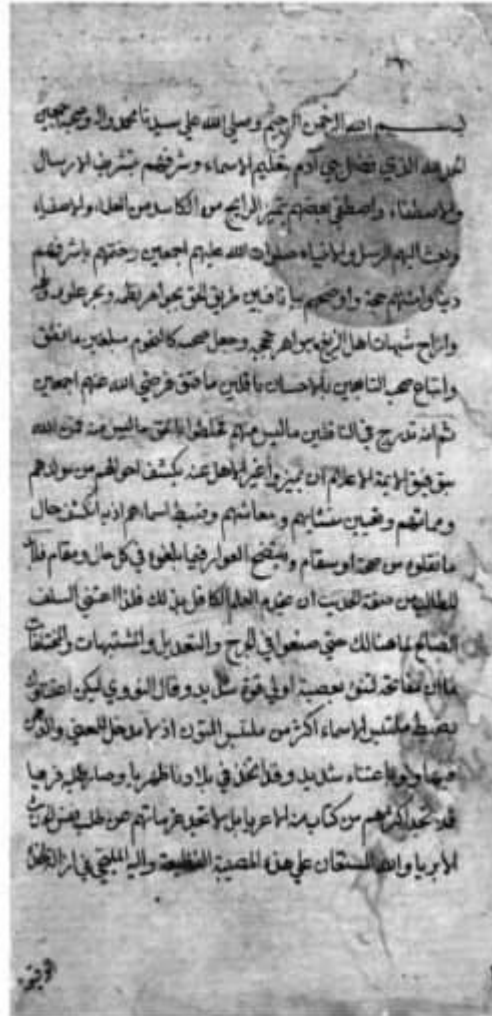 بسم الله الرحمن الرحيم وصلى الله علي سيدنا محمد واله وصحبه اجمعين
الحمد لله الذي فضل بني آدم بتعليم الاسماء وشرفهم بتشريف الارسال
والاصطفاء واصطفى بعضهم بتمييز الرايج من الكاسد من العلماء والاصفياء
وبعث اليهم الرسل والانبياء صلوات الله عليهم اجمعين وختمهم باشرفهم
دينا وامتنهم حجة واوضحهم بيانا فبين طريق الحق بجواهر نظمه وبحر علومه
وازاح شبهات اهل الزيغ بجواهر حججه وجعل صحبه كالنجوم مبلغين ما نطق
واتباع صحبه التابعين بالاحسان ناقلين ما فتق فرضي الله عنهم اجمعين
ثم انه تدرج في الناقلين ما ليس منهم فخلطوا بالحق ما ليس منه فمن الله
بتوفيق الايمة الاعلام ان ميزوا غير الاهل عنه بكشف احوالهم من موالدهم
ومماتهم وتعيين منشايهم ومعاشهم وضبط اسماهم اذ به انكشف حال
ما نقلوه من صحة او سقام ويفتضح العوار فيما بلغوه في كل حال ومقام فلا
للطالبين صنعة الحديث ان يخدم العلم الكافل بذلك فلذا اعتنى السلف
الصالح بما هنالك حتي صنعوا في الجرح والتعديل والمشتبهات والمختلفات
ما ان مفاتحه لتنوء بعصبة اولي قوة شديد وقال النووي ليكن اعتناؤه
بضبط ملتبس الاسماء اكثر من ملتبس المتون اذ لا مدخل للمعنى والذهن
فيها ولو باعتناء شديد وقد اتخذ في بلادنا ظهريا وصار طلبه فريا
قد تجد اكثرهم من كتابه من الاعريا بل لا تجد عزماتهم عن طلب بعض
الابريا والله المستعان علي هذه المصيبة الفظيعة واليه الملتجى في